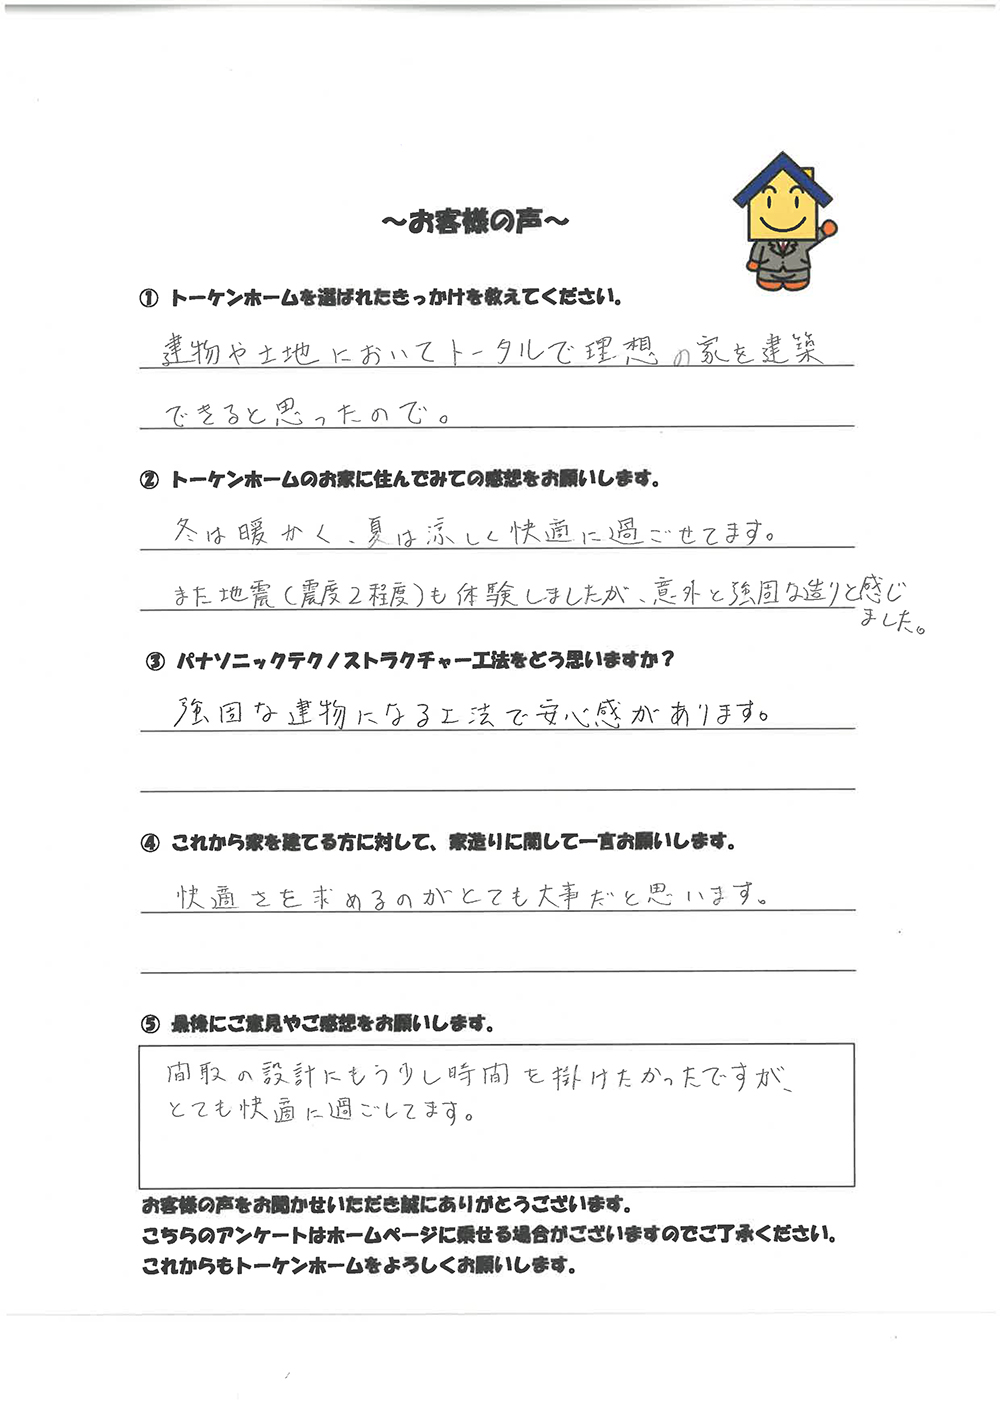 ～お客様の声～
① トーケンホームを選ばれたきっかけを教えてください。
建物や土地においてトータルで理想の家を建築
できると思ったので。
② トーケンホームのお家に住んでみての感想をお願いします。
冬は暖かく、夏は涼しく快適に過ごせてます。
また地震(震度2程度)も体験しましたが、意外と強固な造りと感じ
ました。
③ パナソニックテクノストラクチャー工法をどう思いますか？
強固な建物になる工法で安心感があります。
④ これから家を建てる方に対して、家造りに関して一言お願いします。
快適さを求めるのがとても大事だと思います。
⑤ 最後にご意見やご感想をお願いします。
間取の設計にもう少し時間を掛けたかったですが、
とても快適に過ごしてます。
お客様の声をお聞かせいただき誠にありがとうございます。
こちらのアンケートはホームページに乗せる場合がございますのでご了承ください。
これからもトーケンホームをよろしくお願いします。